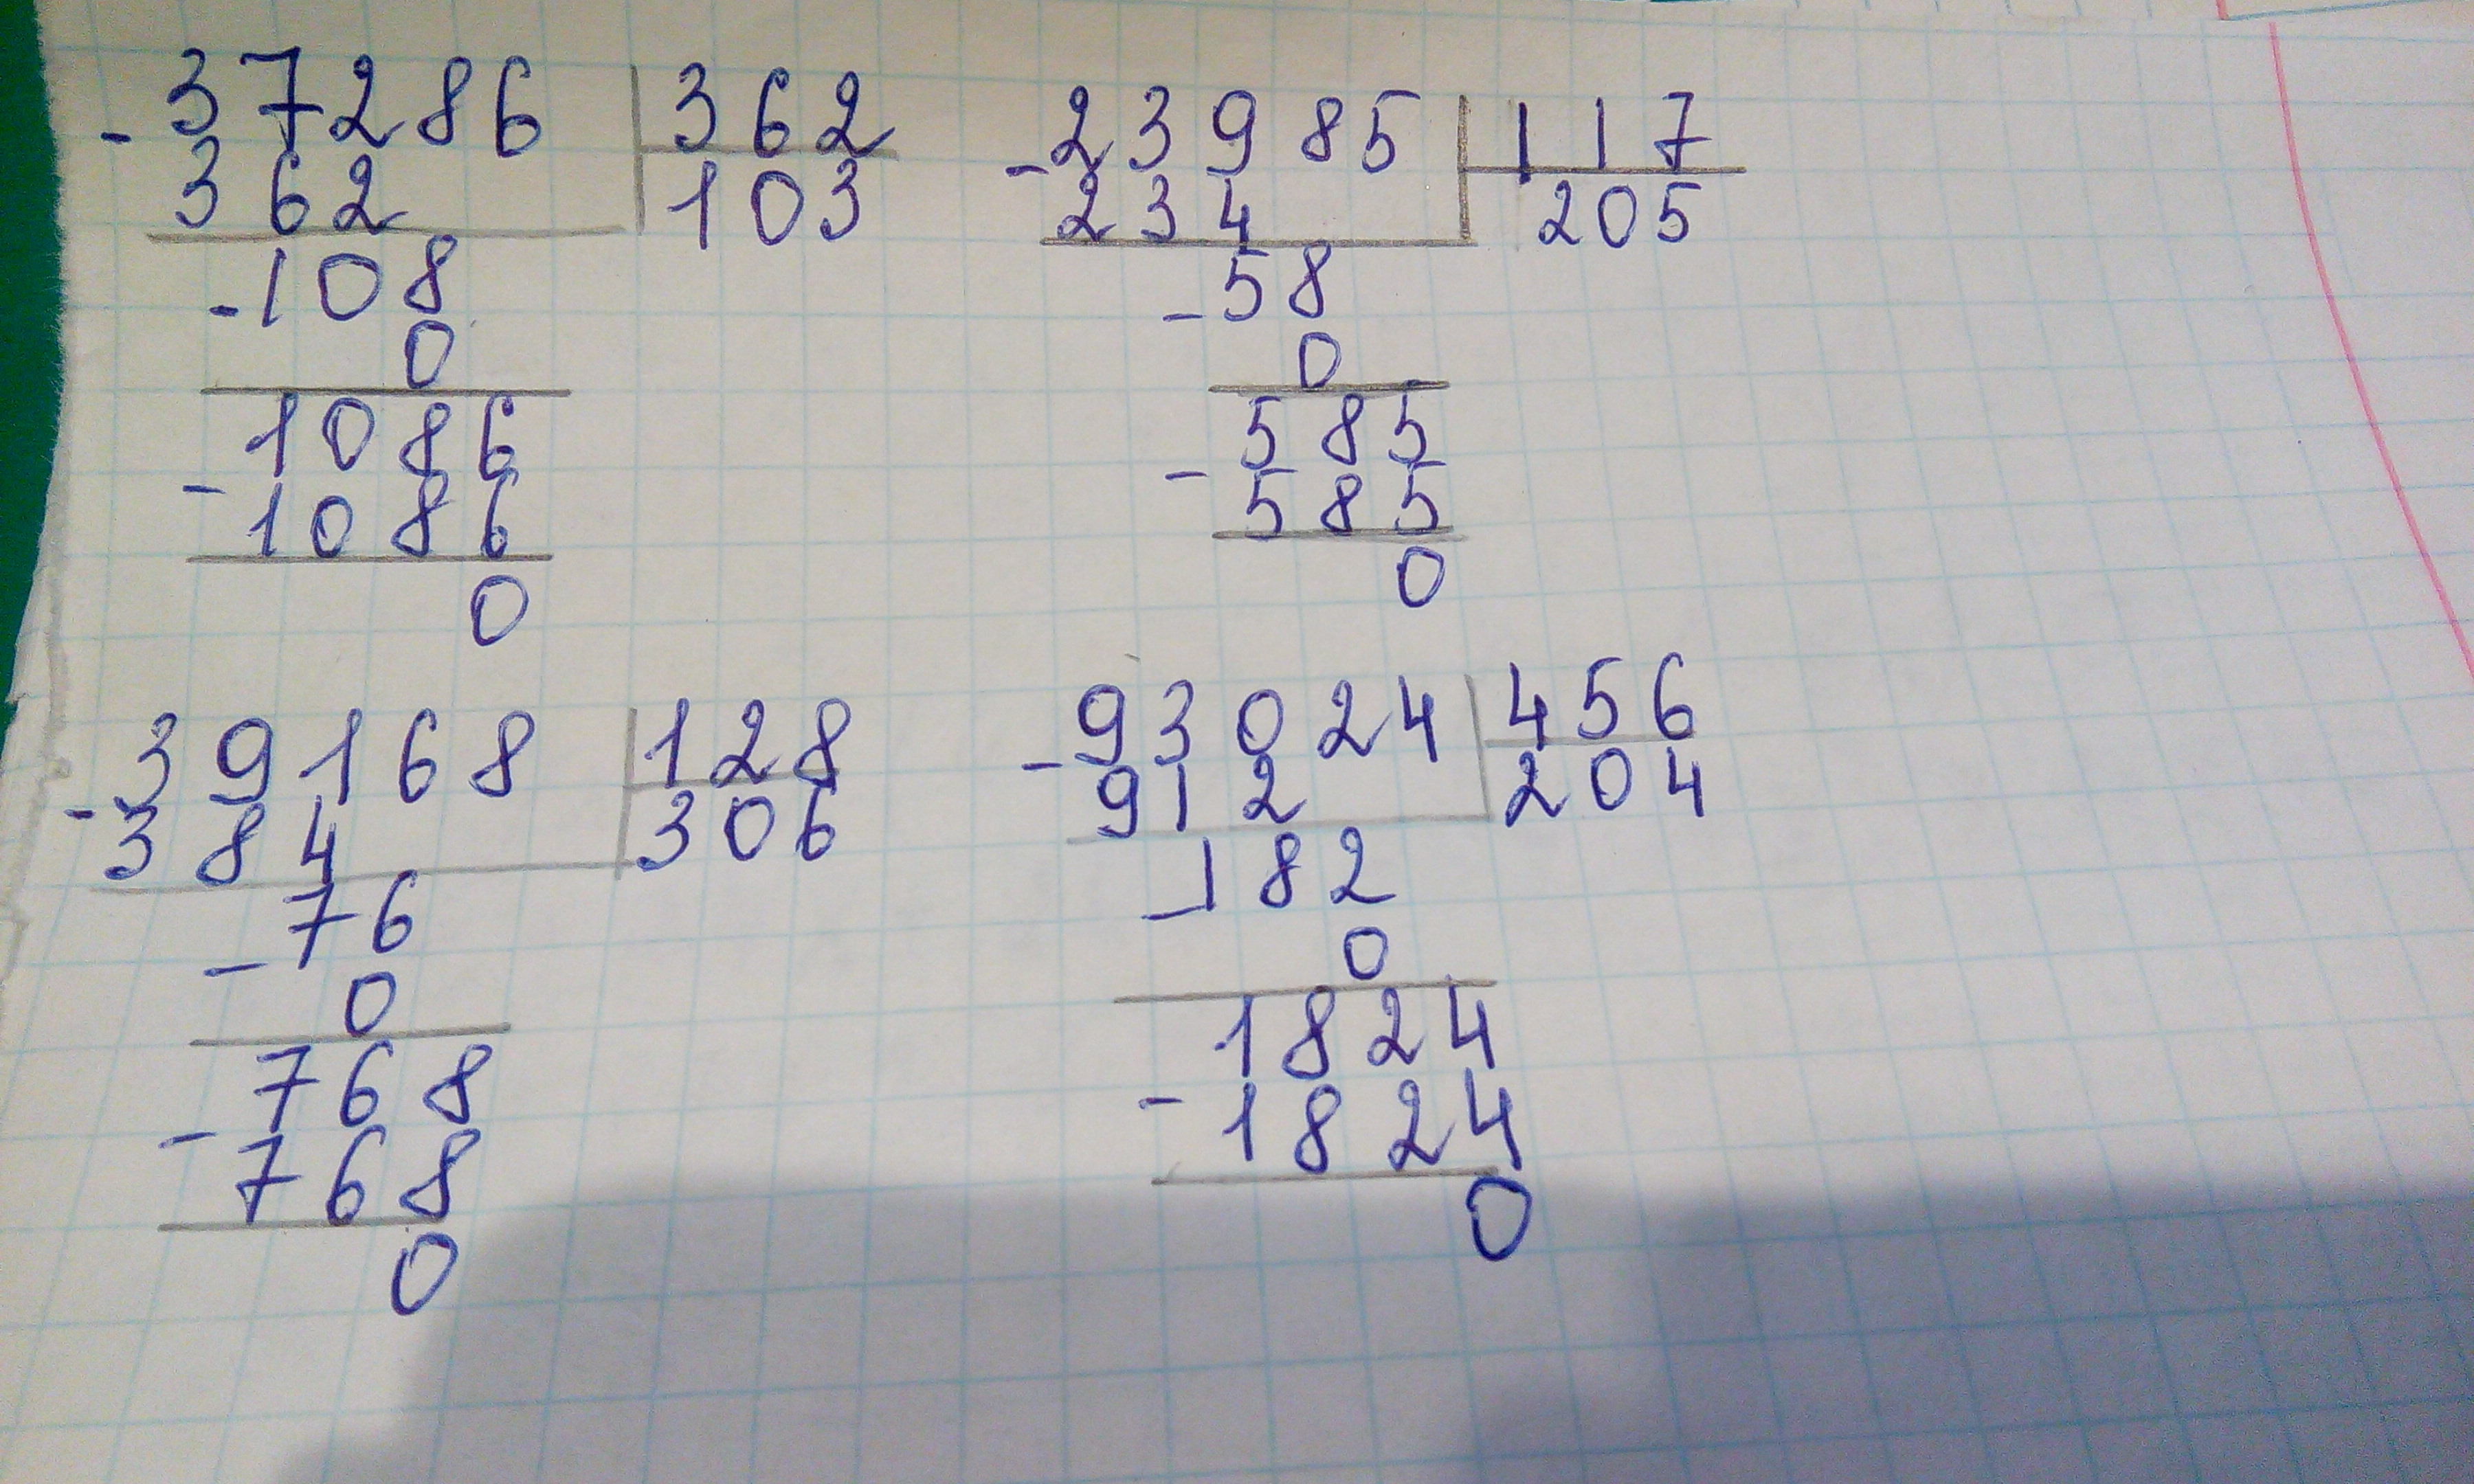 - 37286 | 362
362 | 103
- 108
0
1086
- 1086
0
- 23985 | 117
234 | 205
- 58
0
585
- 585
0
- 39168 | 128
384 | 306
- 76
0
768
- 768
0
- 93024 | 456
912 | 204
- 182
0
1824
- 1824
0